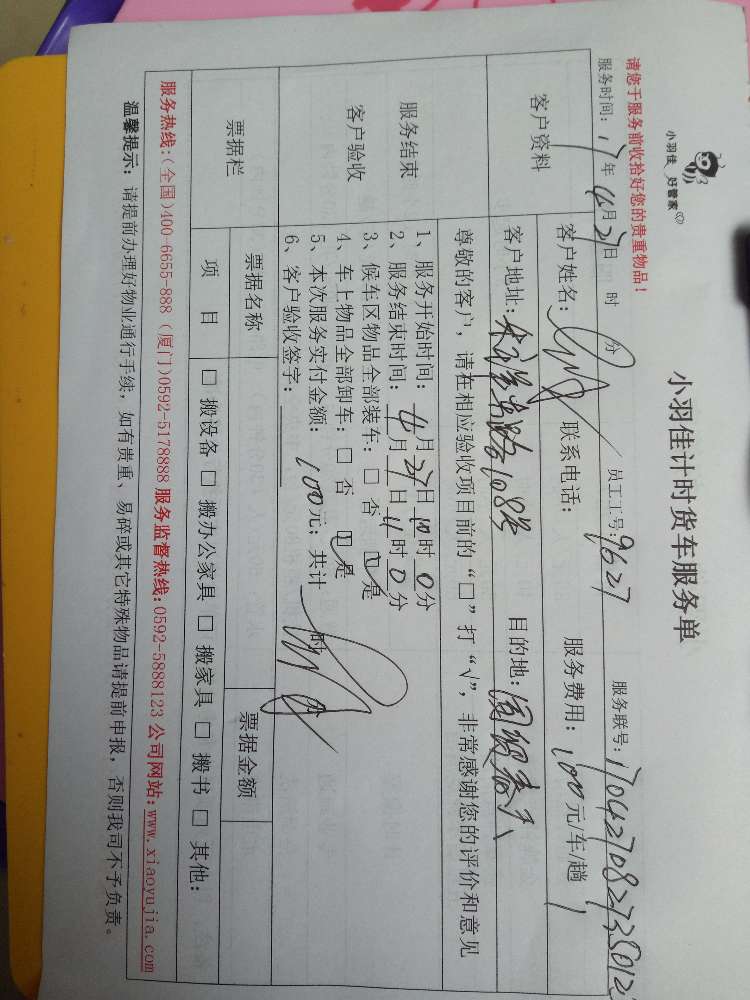 小羽佳 好管家
小羽佳计时货车服务单
请您于服务前收拾好您的贵重物品！
服务时间：17年4月27日 时 分 员工工号：9627 服务联号：170427082735012
客户资料
客户姓名： 联系电话： 服务费用：100元/车/趟
客户地址：禾祥东路108号 目的地：国贸春天
服务结束
客户验收
尊敬的客户，请在相应验收项目前的“□”打“√”，非常感谢您的评价和意见
1、服务开始时间：4月27日10时0分
2、服务结束时间：4月27日11时0分
3、候车区物品全部装车：□ 否 □ 是
4、车上物品全部卸车：□ 否 □ 是
5、本次服务实付金额：100元；共计 时 分
6、客户验收签字：
票据栏 票据名称 票据金额
项 目 □ 搬设备 □ 搬办公家具 □ 搬家具 □ 搬书 □ 其他：
服务热线:(全国)400-6655-888 (厦门)0592-5178888 服务监督热线:0592-5888123 公司网站:www.xiaoyujia.com
温馨提示：请提前办理好物业通行手续，如有贵重、易碎或其它特殊物品请提前申报，否则我司不予负责。